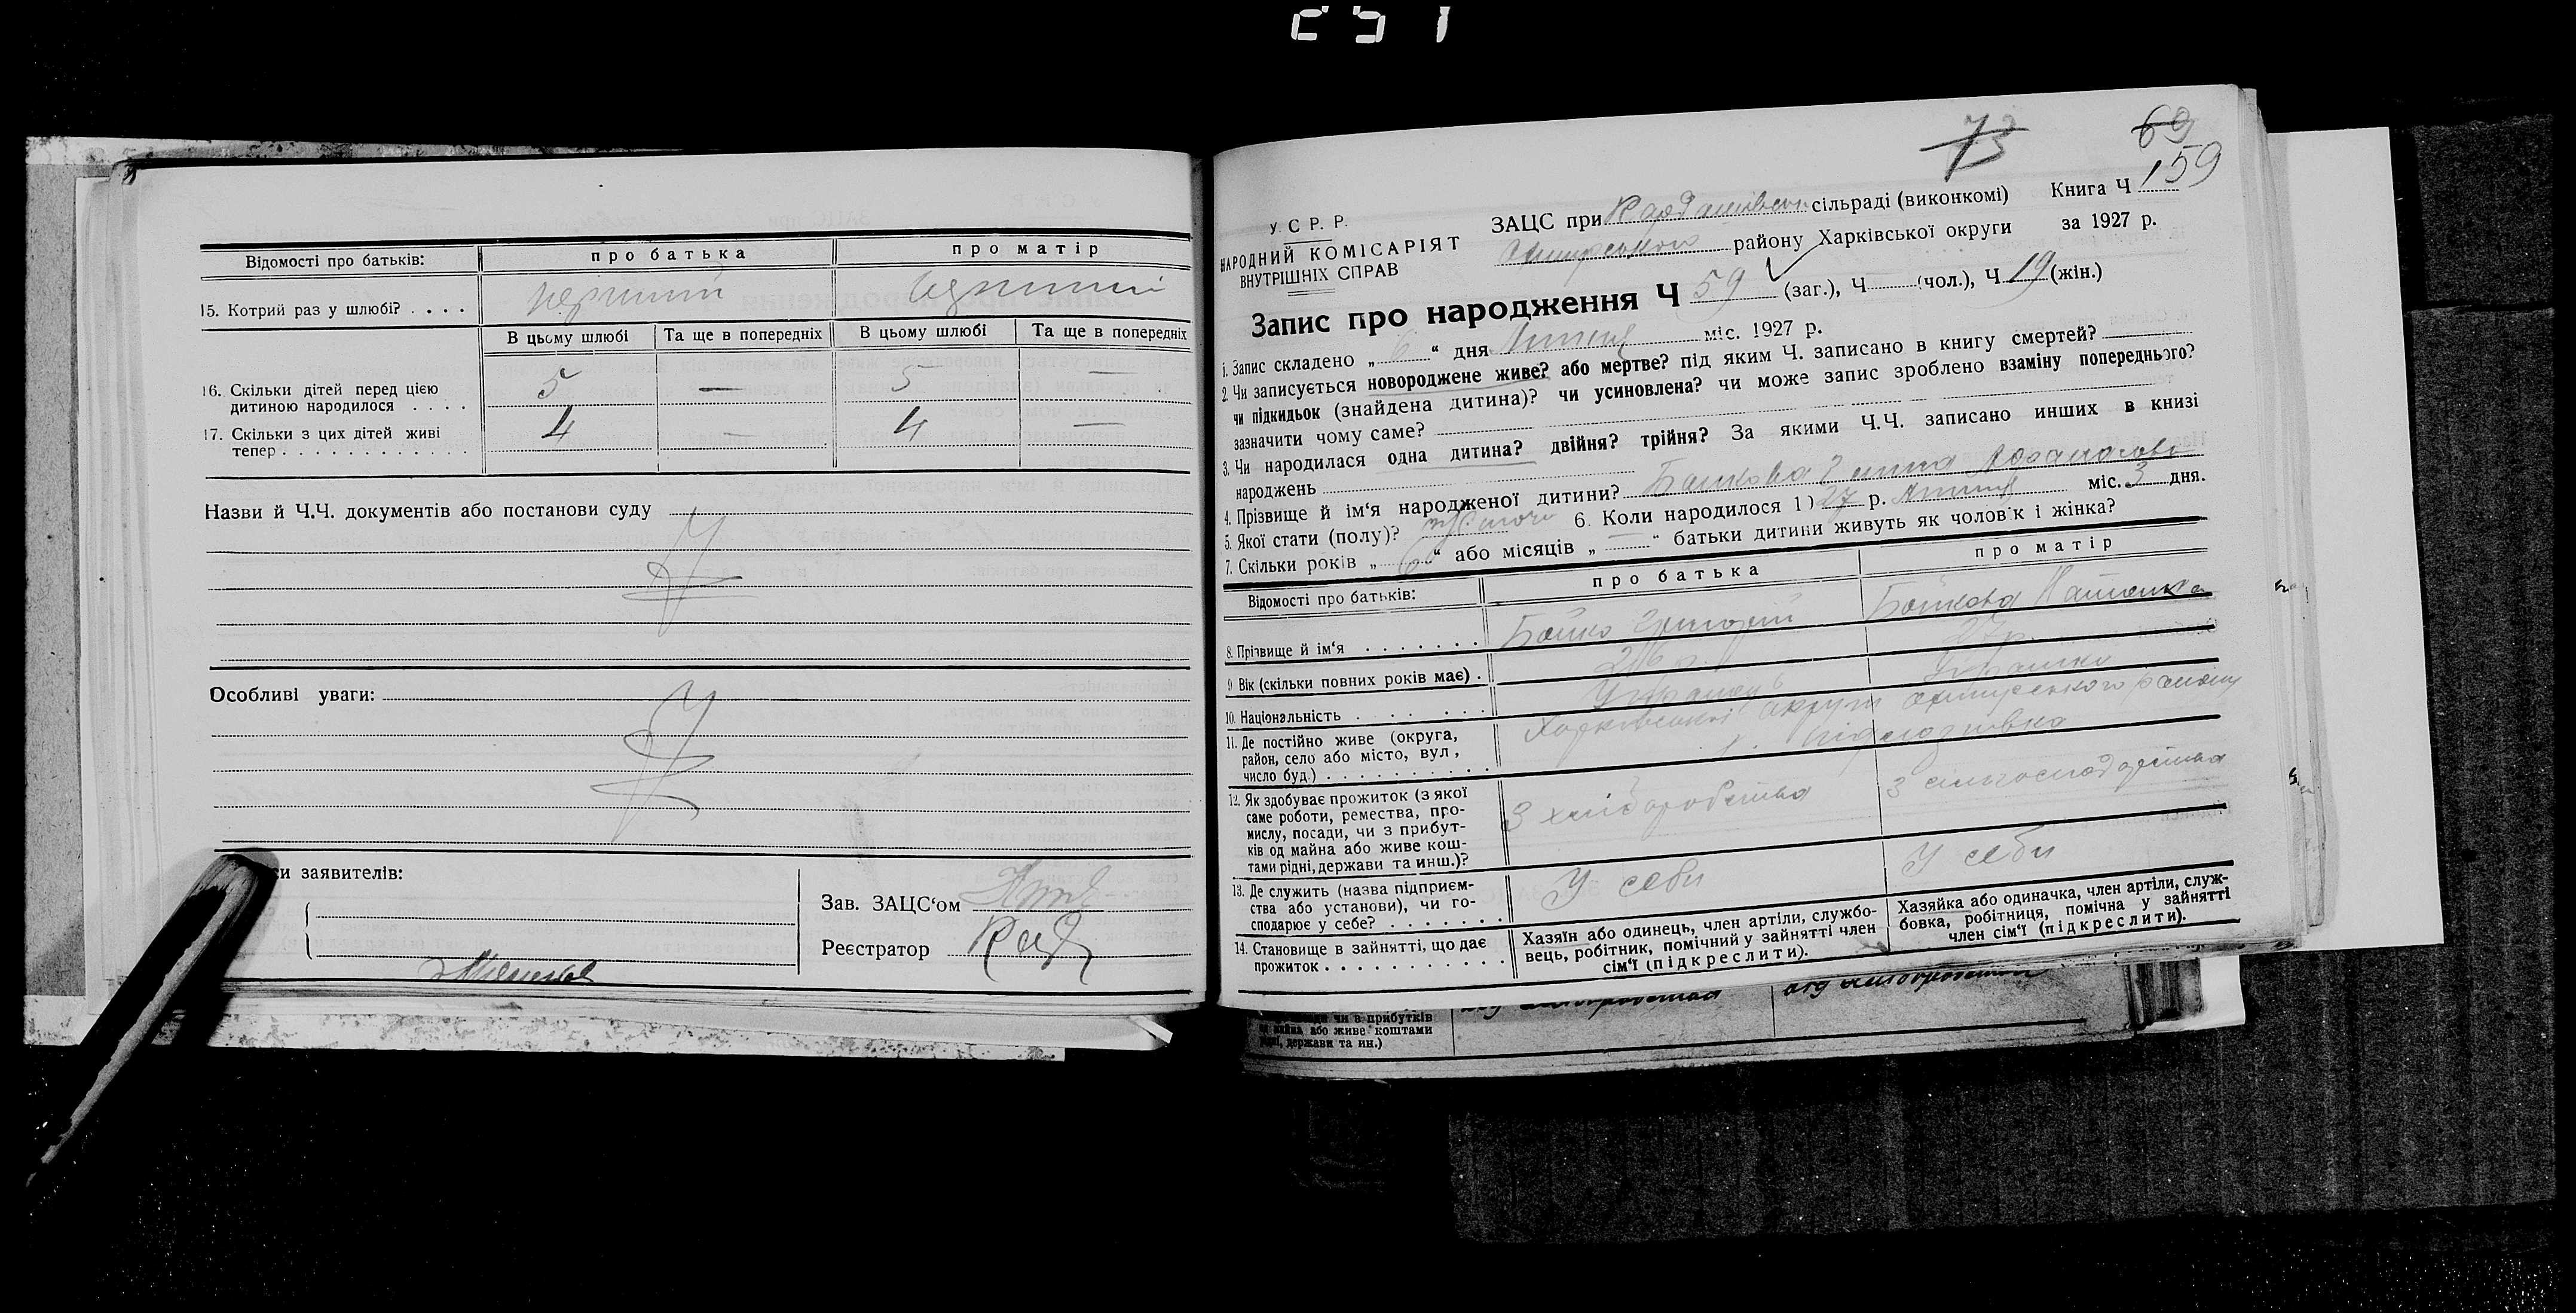 251
Відомості про батьків: про батька про матір
15. Котрий раз у шлюбі? . . . . перший
В цьому шлюбі Та ще в попередніх В цьому шлюбі Та ще в попередніх
16. Скільки дітей перед цією
дитиною народилося . . . . 5 — 5 —
17. Скільки з цих дітей живі
тепер . . . . . . . . . . . . 4 — 4 —
Назви й Ч.Ч. документів або постанови суду
Особливі уваги:
си заявителів:
Зав. ЗАЦС‘ом
Реєстратор
73 69
У С Р. Р. ЗАЦС при сільраді (виконкомі) Книга Ч 159
НАРОДНИЙ КОМІСАРІЯТ району Харківської округи за 1927 р.
ВНУТРІШНІХ СПРАВ
Запис про народження Ч 59 (заг.), Ч (чол.), Ч 19 (жін.)
1. Запис складено „ 6 “ дня Липця міс. 1927 р.
2. Чи записується новороджене живе? або мертве? під яким Ч. записано в книгу смертей?
чи підкидьок (знайдена дитина)? чи усиновлена? чи може запис зроблено взаміну попереднього?
зазначити чому саме?
3. Чи народилася одна дитина? двійня? трійня? За якими Ч.Ч. записано инших в книзі
народжень
4. Прізвище й ім‘я народженої дитини?
5. Якої стати (полу)? 6. Коли народилося 1) 27 р. Липця міс. 3 дня.
7. Скільки років „ 6 “ або місяців „ — “ батьки дитини живуть як чоловік і жінка?
Відомості про батьків: про батька про матір
8. Прізвище й ім‘я . . . . . . . Бойко Григорій Бойкова
9 Вік (скільки повних років має) . 27 р.
10. Національність . . . . . . . Українець Українка
11. Де постійно живе (округа, Харківської округи району
район, село або місто, вул,
число буд.) . . . . . . . . . .
12. Як здобуває прожиток (з якої
саме роботи, ремества, про-
мислу, посади, чи з прибут-
ків од майна або живе кош-
тами рідні, держави та инш.)? З хліборобства З
13. Де служить (назва підприєм-
ства або установи), чи го-
сподарює у себе? . . . . . . У себи У себи
14. Становище в зайнятті, що дає
прожиток . . . . . . . . . . .
Хазяїн або одинець, член артіли, службо-
вець, робітник, помічний у зайнятті член
сім‘ї (підкреслити).
Хазяйка або одиначка, член артіли, служ-
бовка, робітниця, помічна у зайнятті
член сім‘ї (підкреслити).
чи в прибутків
майна або живе коштами
рідні, держави та ин.)